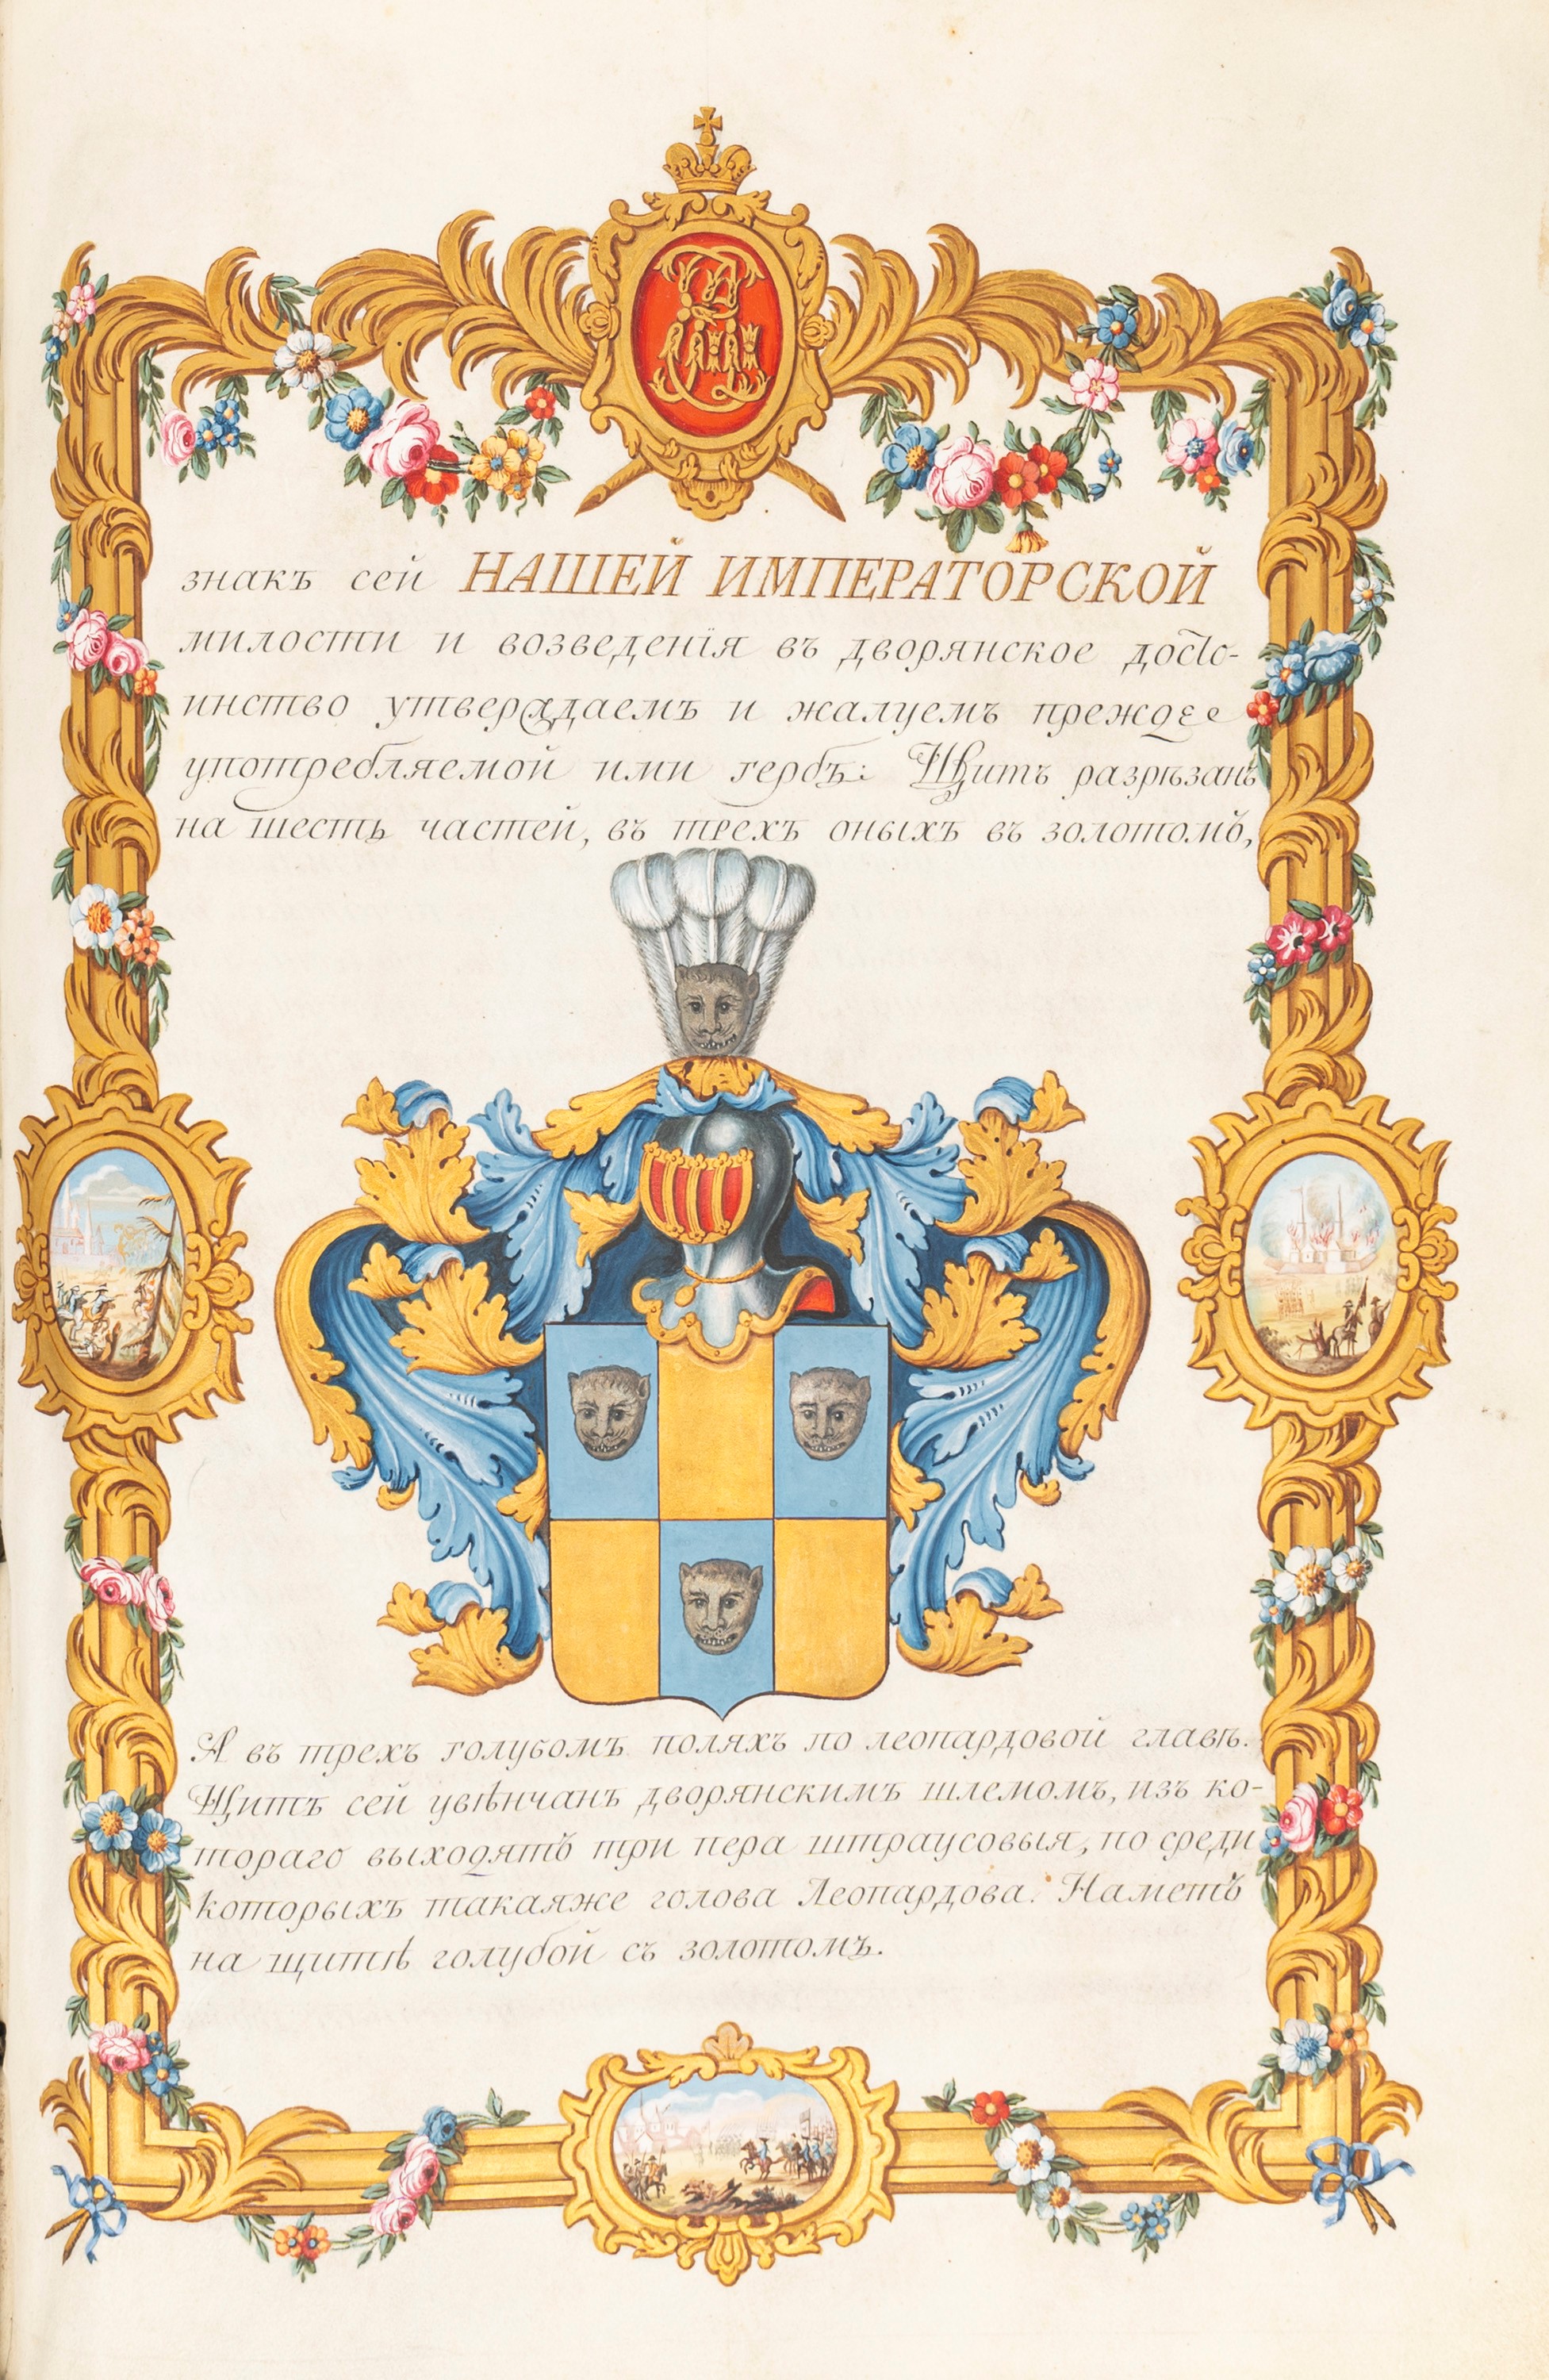 знакъ сей НАШЕЙ ИМПЕРАТОРСКОЙ
милости и возведенїя въ дворянское досто-
инство утверждаемъ и жалуемъ прежде
употребляемой ими гербъ: Щитъ разрѣзанъ
на шесть частей, въ трехъ оныхъ въ золотомъ,
А въ трехъ голубомъ поляхъ по леопардовой главѣ.
Щитъ сей увѣнчанъ дворянскимъ шлемомъ, изъ ко-
тораго выходятъ три пера штраусовыя, по среди
которыхъ такаяже голова Леопардова. Наметъ
на щитѣ голубой съ золотомъ.